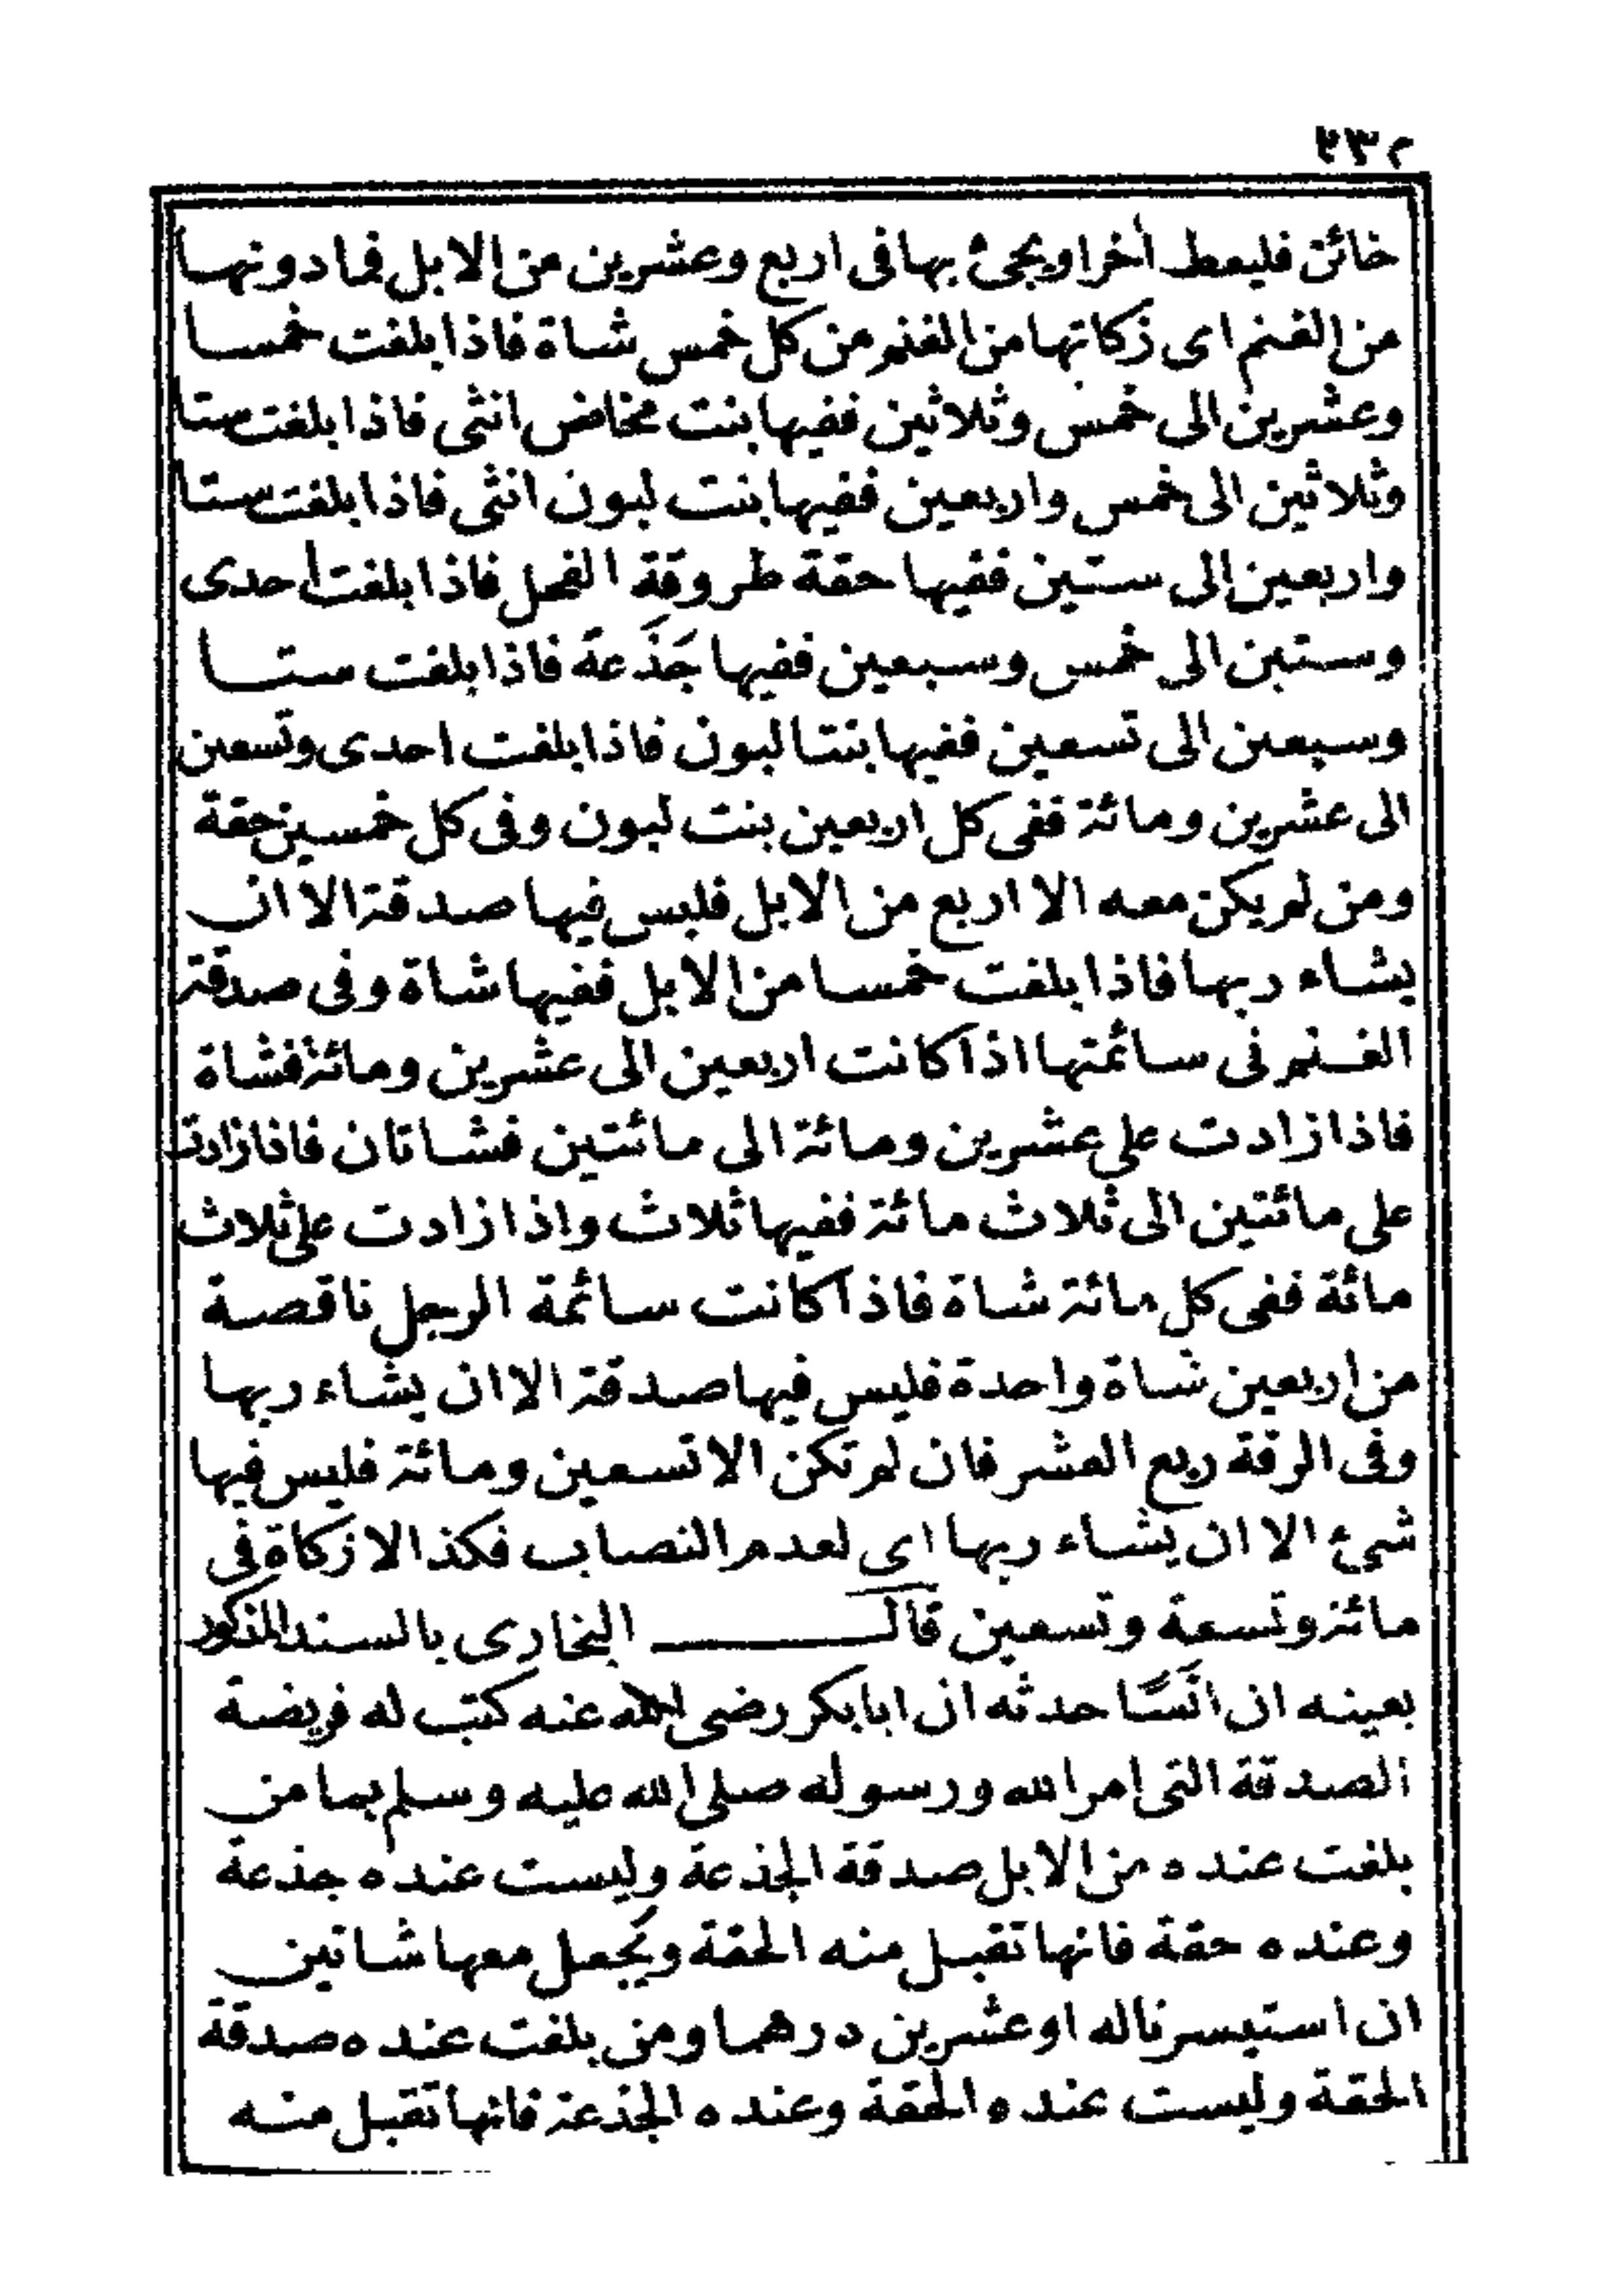 ٢٣٢
خائن فليعط اخرا ويجئ بها فى اربع وعشرين من الابل فما دونها
من الغنم اى زكاتها من الغنم من كل خمس شاة فاذا بلغت خمسا
وعشرين الى خمس وثلاثين ففيها بنت مخاض انثى فاذا بلغت ستا
وثلاثين الى خمس واربعين ففيها بنت لبون انثى فاذا بلغت ستا
واربعين الى ستين ففيها حقة طروقة الفحل فاذا بلغت احدى
وستين الى خمس وسبعين ففيها جَذَعة فاذا بلغت ستا
وسبعين الى تسعين ففيها بنتا لبون فاذا بلغت احدى وتسعين
الى عشرين ومائة ففى كل اربعين بنت لبون وفى كل خمسين حقة
ومن لم يكن معه الا اربع من الابل فليس فيها صدقة الا ان
يشاء ربها فاذا بلغت خمسا من الابل ففيها شاة وفى صدقة
الغنم فى سائمتها اذا كانت اربعين الى عشرين ومائة فشاة
فاذا زادت على عشرين ومائة الى مائتين فشاتان فاذا زادت
على مائتين الى ثلاث مائة ففيها ثلاث واذا زادت على ثلاث
مائة ففى كل مائة شاة فاذا كانت سائمة الرجل ناقصة
من اربعين شاة واحدة فليس فيها صدقة الا ان يشاء ربها
وفى الرقة ربع العشر فان لم تكن الا تسعين ومائة فليس فيها
شئ الا ان يشاء ربها اى لعدم النصاب فكذا لا زكاة فى
مائة وتسعة وتسعين قال البخارى بالسند المذكور
بعينه ان انَسًا حدثه ان ابا بكر رضى الله عنه كتب له فريضة
الصدقة التى امر الله ورسوله صلى الله عليه وسلم بها من
بلغت عنده من الابل صدقة الجذعة وليست عنده جذعة
وعنده حقة فانها تقبل منه الحقة ويُجعل معها شاتين
ان استيسرتا له او عشرين درهما ومن بلغت عنده صدقة
الحقة وليست عنده الحقة وعنده الجذعة فانها تقبل منه